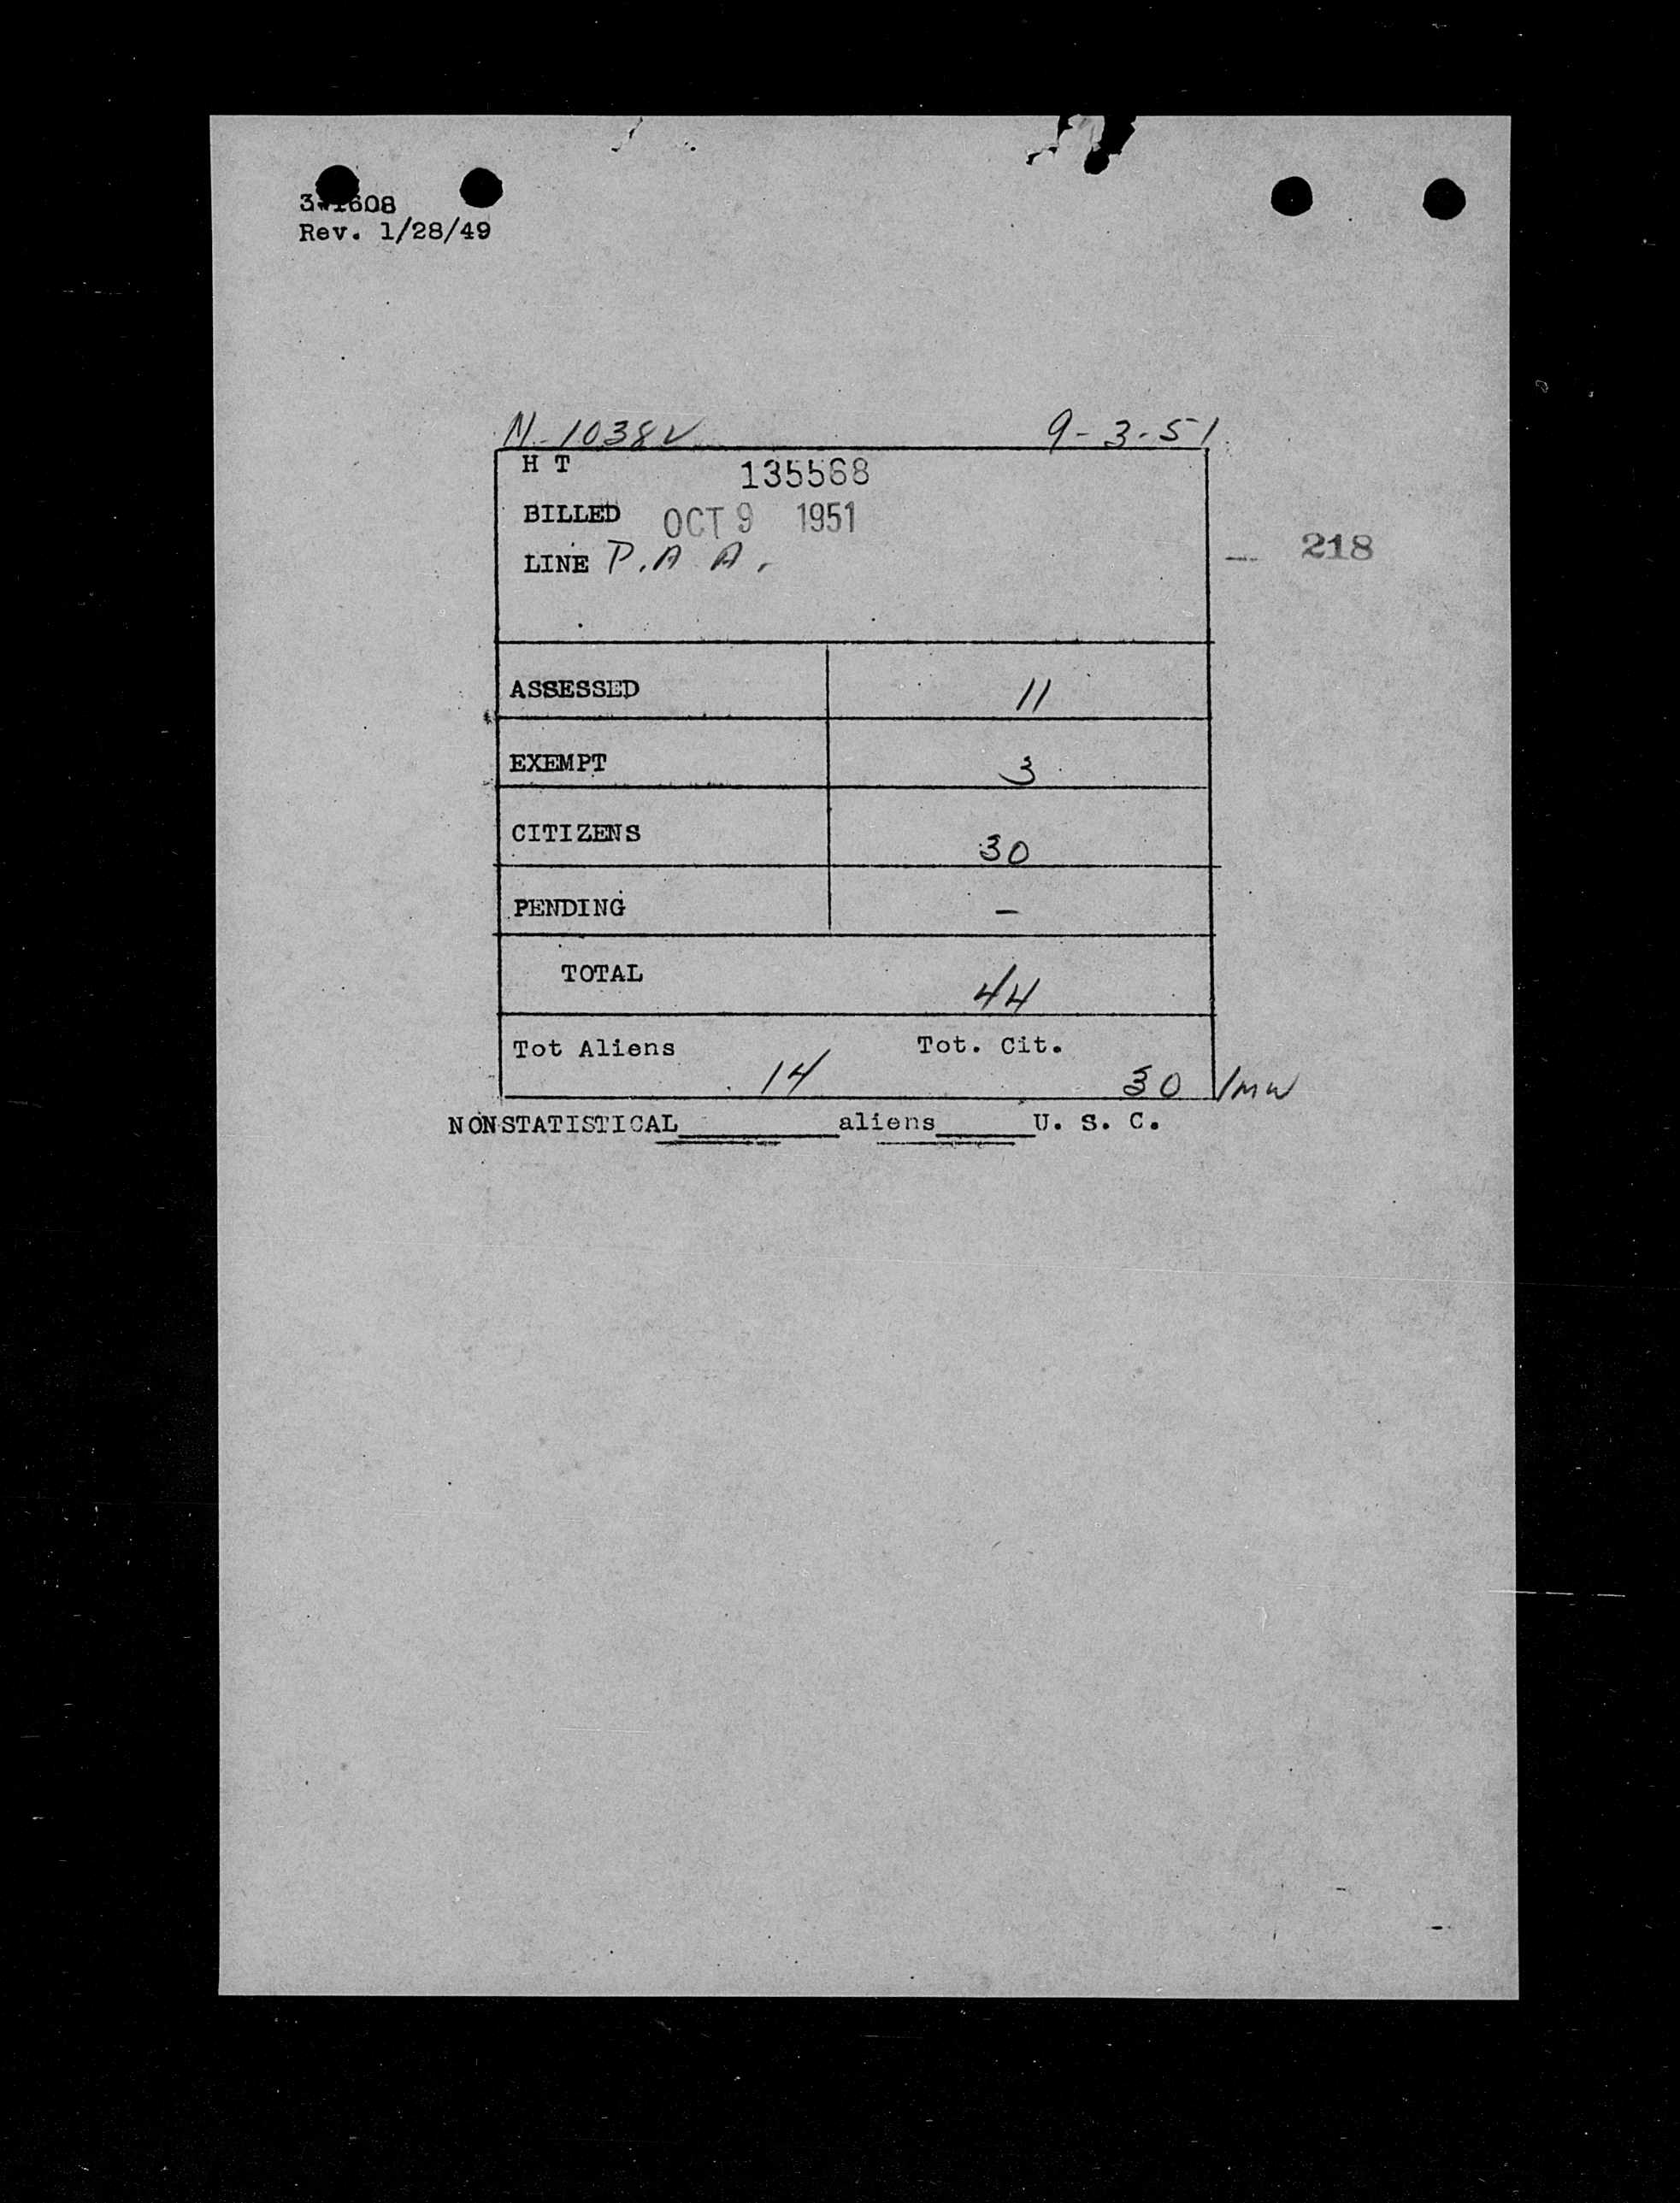 Rev. 1/28/49
N-1038V 9-3-51
H T 135568
BILLED OCT 9 1951
LINE P.A A.
218
ASSESSED 11
EXEMPT 3
CITIZENS 30
PENDING –
TOTAL 44
Tot Aliens 14 Tot. Cit. 30 /mw
NONSTATISTICAL________aliens_____U. S. C.